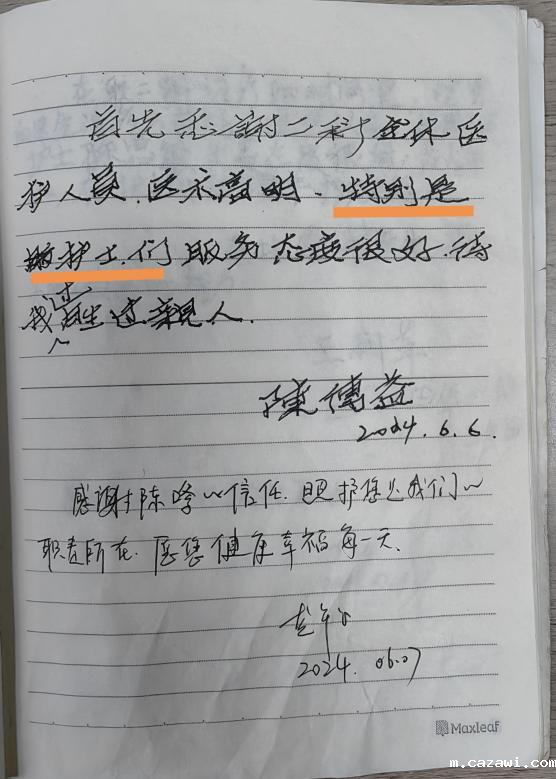 首先感謝二科全体医
护人员.医术高明.特别是
护士.们服务态度很好.待
我过
过親人.
陳傳益
2024.6.6.
感谢陈 信任.照护您是我们
职责所在.愿您健康幸福每一天.
2024.06.07
Maxleaf
m.cazawi.com